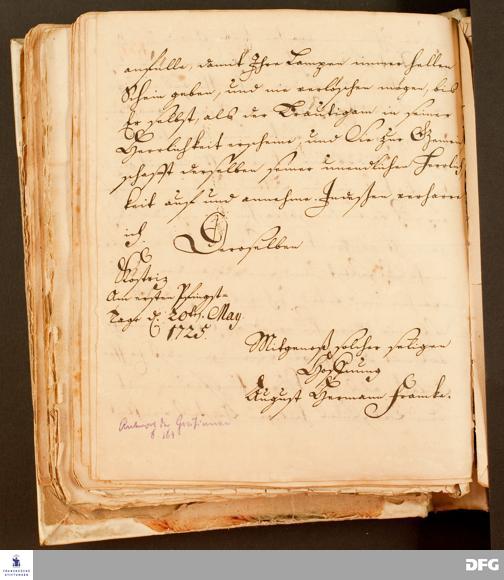 anfülle, damit Ihre Lampen immer hellen
Schein geben, und nie verlöschen mögen, bis
Er selbst, als der Bräutigam in seiner
Herrlichkeit erscheine, und Sie zur Gemein
schafft derselben seiner unendlichen Herrlich
keit auf und annehme. Indeßen verharre
ich
Deroselben
Köstriz
Am ersten Pfingst-
Tage d. 20t. May
1725.
Mitgenoß solcher seligen
Hoffnung
August Hermann Francke.
Antwort der Gräfinnen
S. 161
FRANCKESCHE
STIFTUNGEN
DFG